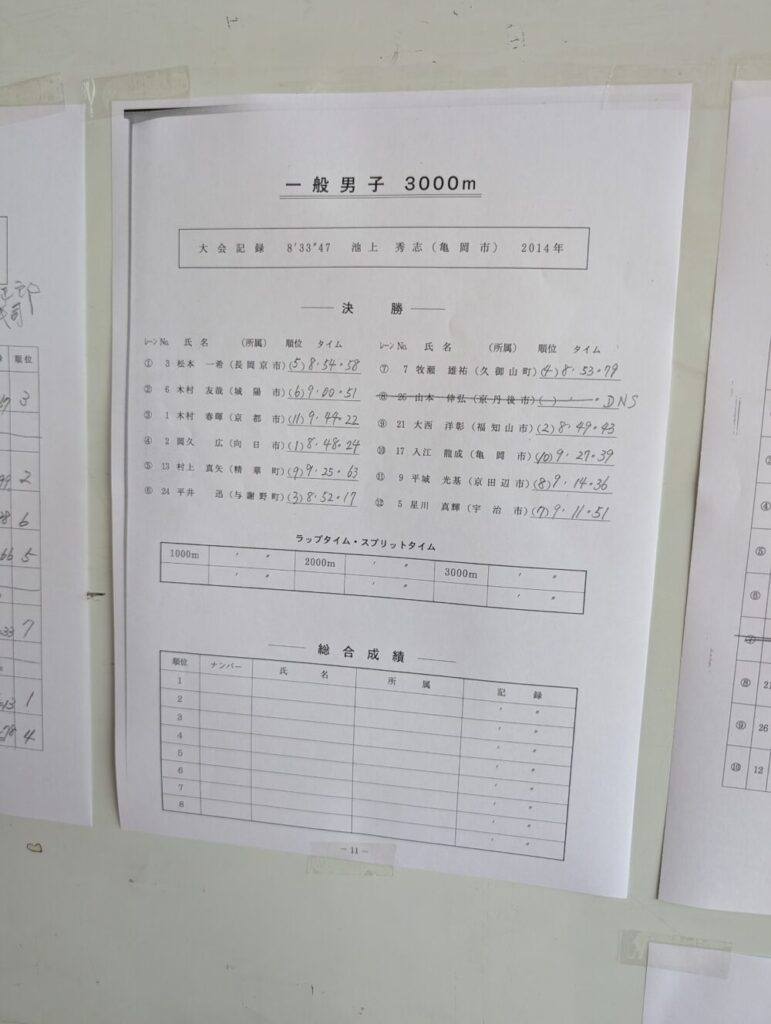 一般男子 3000m
大会記録 8'33"47 池上 秀志(亀岡市) 2014年
決 勝
レーン No. 氏 名 (所属) 順位 タイム
① 3 松本 一希(長岡京市)(5)8・54・58
② 6 木村 友哉(城陽市)(6)9・00・51
③ 1 木村 春暉(京都市)(11)9・44・22
④ 2 岡久 広(向日市)(1)8・48・24
⑤ 13 村上 真矢(精華町)(9)9・25・63
⑥ 24 平井 迅(与謝野町)(3)8・52・17
レーン No. 氏 名 (所属) 順位 タイム
⑦ 7 牧瀬 雄祐(久御山町)(4)8・53・79
⑧ 26 山本 伸弘(京丹後市)( ) ・ ・ DNS
⑨ 21 大西 洋彰(福知山市)(2)8・49・43
⑩ 17 入江 龍成(亀岡市)(10)9・27・39
⑪ 9 平城 光基(京田辺市)(8)9・14・36
⑫ 5 星川 真輝(宇治市)(7)9・11・51
ラップタイム・スプリットタイム
1000m ′ ″ 2000m ′ ″ 3000m ′ ″
′ ″ ′ ″ ′ ″
総合成績
順位 ナンバー 氏 名 所 属 記 録
1 ′ ″
2 ′ ″
3 ′ ″
4 ′ ″
5 ′ ″
6 ′ ″
7 ′ ″
8 ′ ″
－11－
順位
3
2
6
5
7
1
4
④
⑤
⑥
⑦
⑧ 21
⑨ 26
⑩ 12